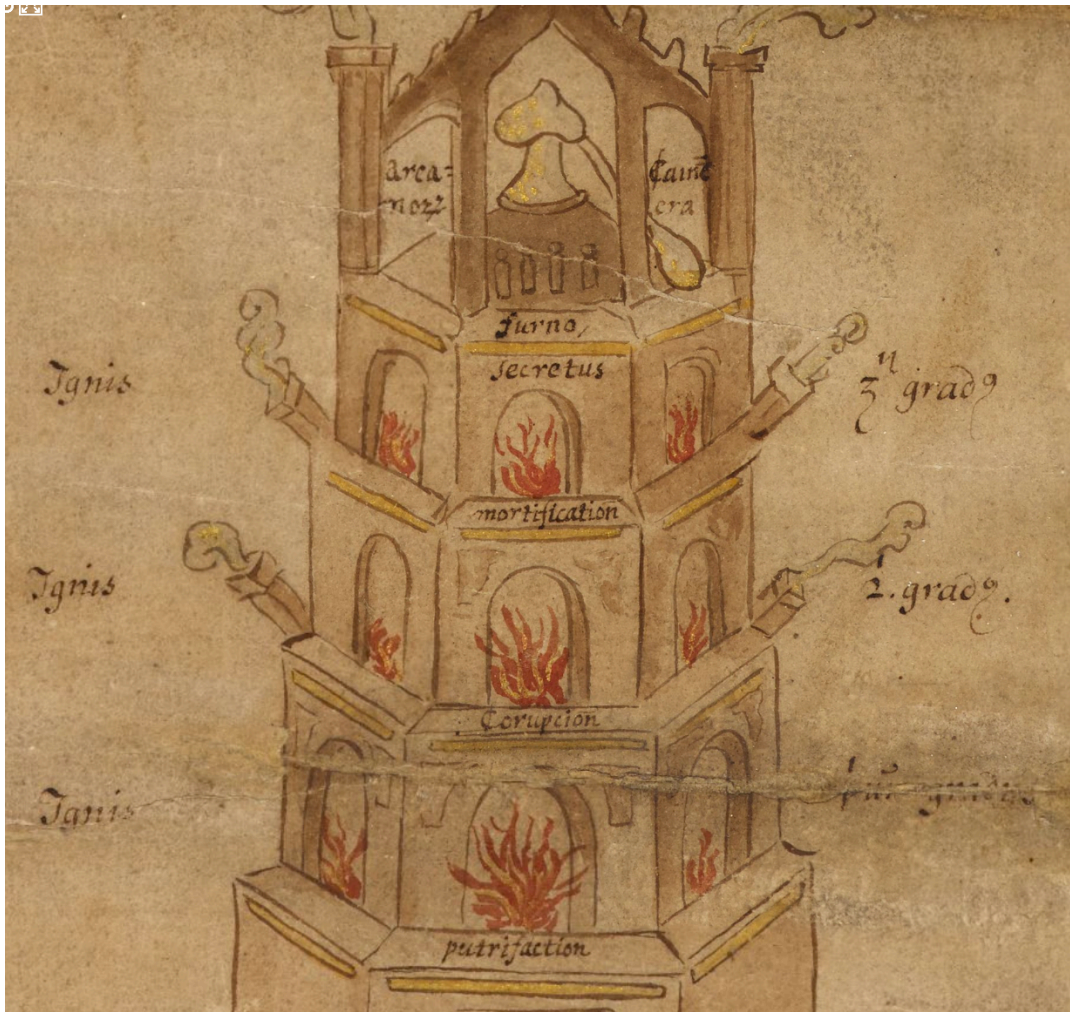 Arca=
norz
Cam̃
era
furno,
secretus
Ignis
3ᵘ gradꝰ
mortification
Ignis
2. gradꝰ.
Corupcion
Ignis
putrifaction